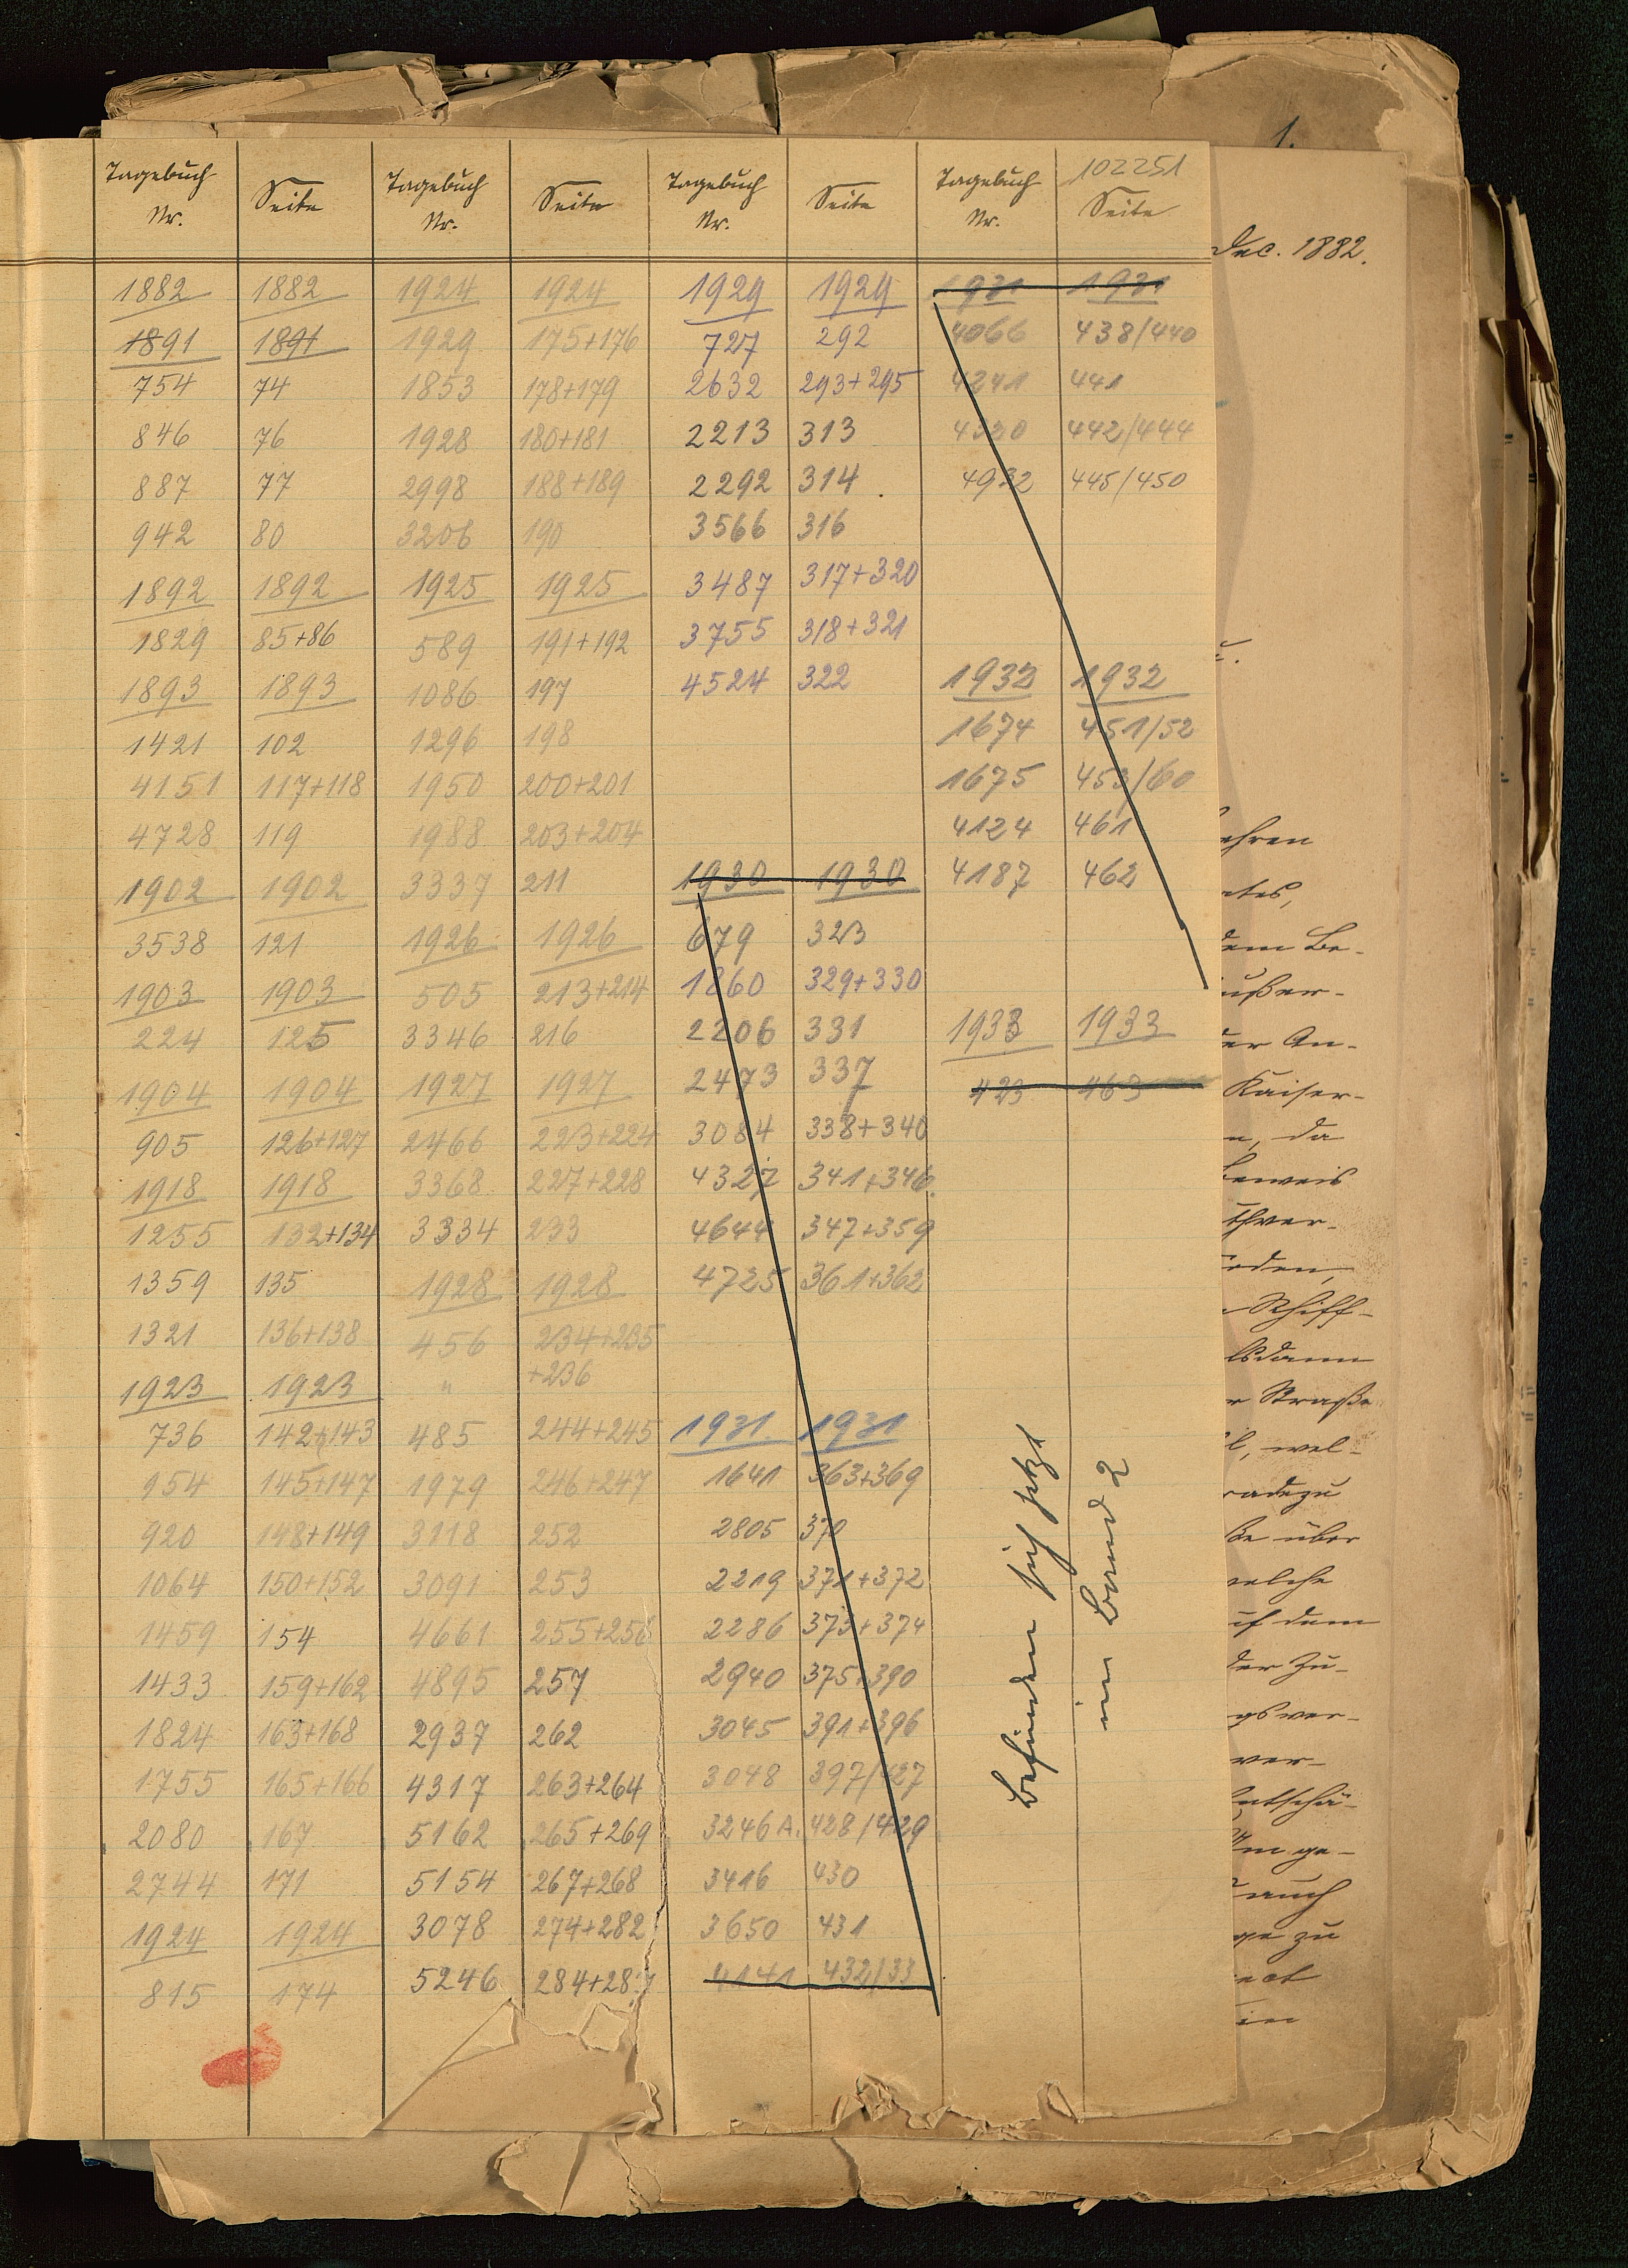 1.
102251
Tagebuch Nr. Seite Tagebuch Nr. Seite Tagebuch Nr. Seite Tagebuch Nr. Seite
Dec. 1882.
1882 1882 1924 1924 1929 1929 1931 1931
1891 1891 1929 175+176 727 292 4066 438/440
754 74 1853 178+179 2632 293+295 4241 441
846 76 1928 180+181 2213 313 442/444
887 77 2998 188+189 2292 314 4932 445/450
942 80 3206 190 3566 316
1892 1892 1925 1925 3487 317+320
1829 85+86 589 191+192 3755 318+321
1893 1893 1086 197 4524 322 1932 1932
1421 102 1296 198 1674 451/52
4151 117+118 1950 200+201 1675 453/60
4728 119 1988 203+204 4124 461
1902 1902 3337 211 1930 1930 4187 462
3538 121 1926 1926 679 323
1903 1903 505 213+214 1860 329+330
224 125 3346 216 2206 331 1933 1933
1904 1904 1927 1927 2473 337 423 463
905 126+127 2466 223+224 3084 338+340
1918 1918 3368 227+228 4327 341+346
1255 132+134 3334 233 4644 347+359
1359 135 1928 1928 4725 361+362
1321 136+138 456 234+235
1923 1923 " +236
736 142+143 485 244+245 1931 1931
954 145+147 1979 246+247 1641 363+369
920 148+149 3118 252 2805 370
1064 150+152 3091 253 2219 371+372
1459 154 4661 255+256 2286 373+374
1433 159+162 4895 257 2940 375+390
1824 163+168 2937 262 3045 391+396
1755 165+166 4317 263+264 3048 397/427
2080 167 5162 265+269 3246 A. 428/429
2744 171 5154 267+268 3416 430
1924 1924 3078 274+282 3650 431
815 174 5246 284+287 4141 432/33
Befinden sich jetzt
im Band 2
ehren
dem Be-
ußer-
er An-
Kaiser-
n, da
beweis
thver-
rden,
Schiff-
lsdann
r Straße
l, wel-
radezu
ße über
welche
uf dem
der Zu-
gsver-
ver-
Entschä-
auch
ge zu